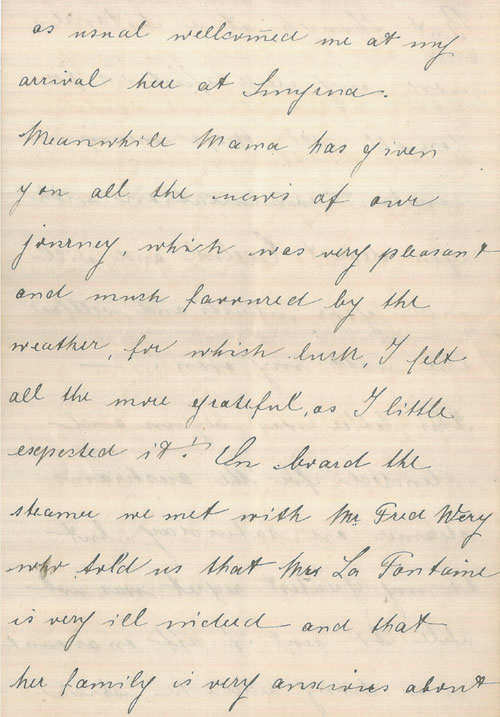 as usual wellcomed me at my
arrival here at Smyrna.
Meanwhile Mama has given
you all the news of our
journey, which was very pleasant
and much favoured by the
weather, for which luck, I felt
all the more grateful, as I little
expected it! On board the
steamer we met with Mr Fred Wery
who told us that Mrs La Fontaine
is very ill indeed and that
her family is very anxious about